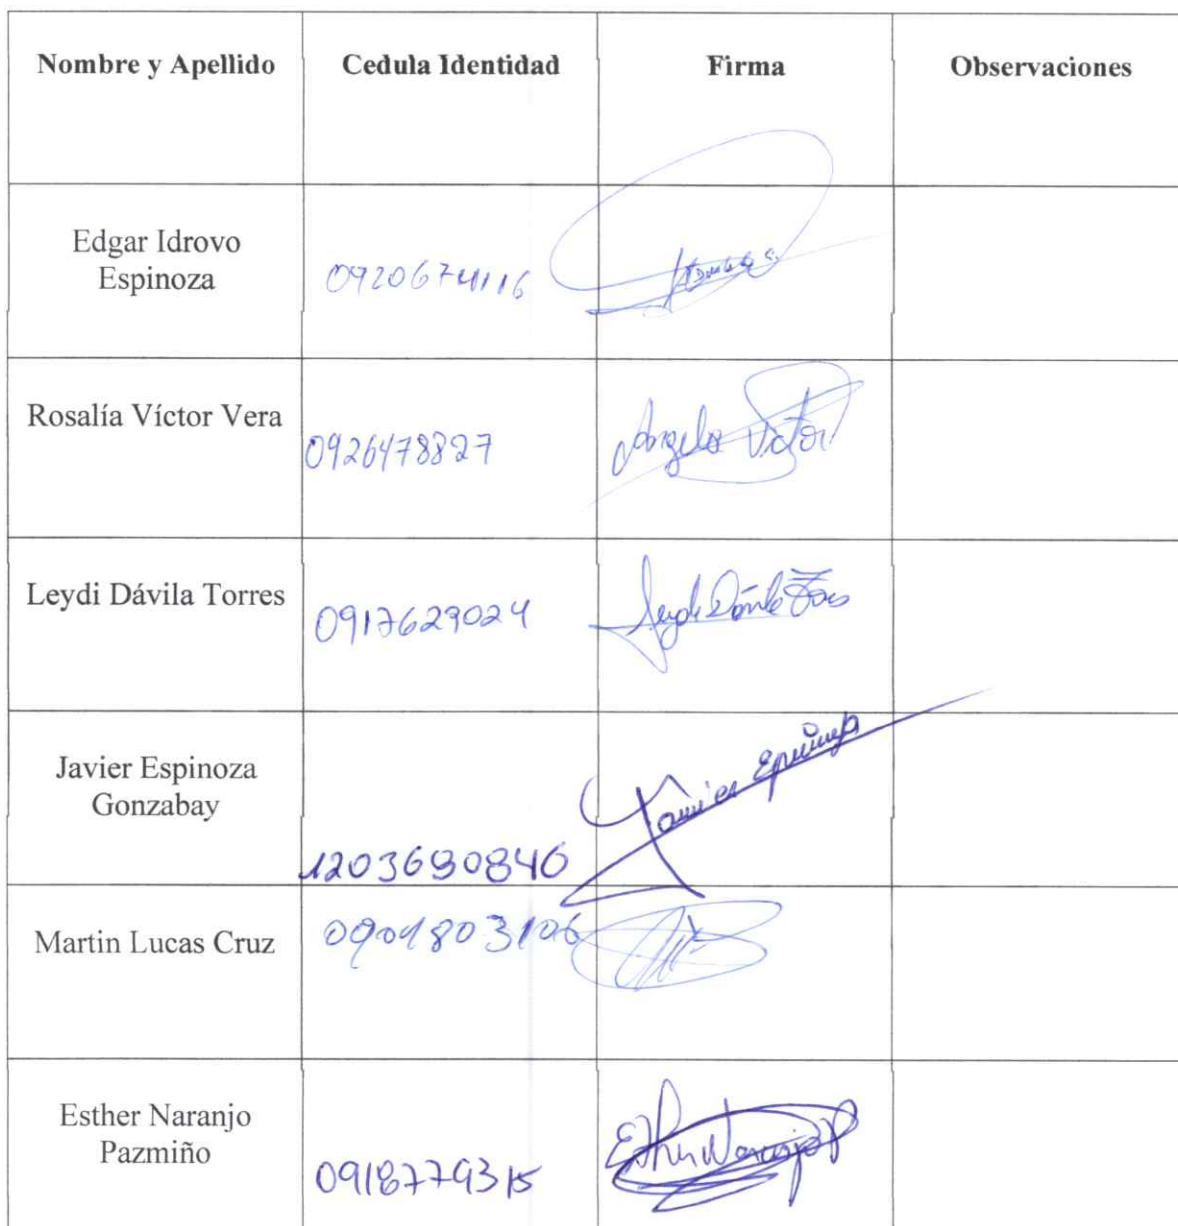 Nombre y Apellido Cedula Identidad Firma Observaciones
Edgar Idrovo
Espinoza
0920674116
Rosalía Víctor Vera
0926478827 Angela Victor
Leydi Dávila Torres
0917629024 Leydi Dávila
Javier Espinoza
Gonzabay
Javier Espinoza
1203690846
Martin Lucas Cruz 0901803106
Esther Naranjo
Pazmiño
0918779315 Esther Naranjo P